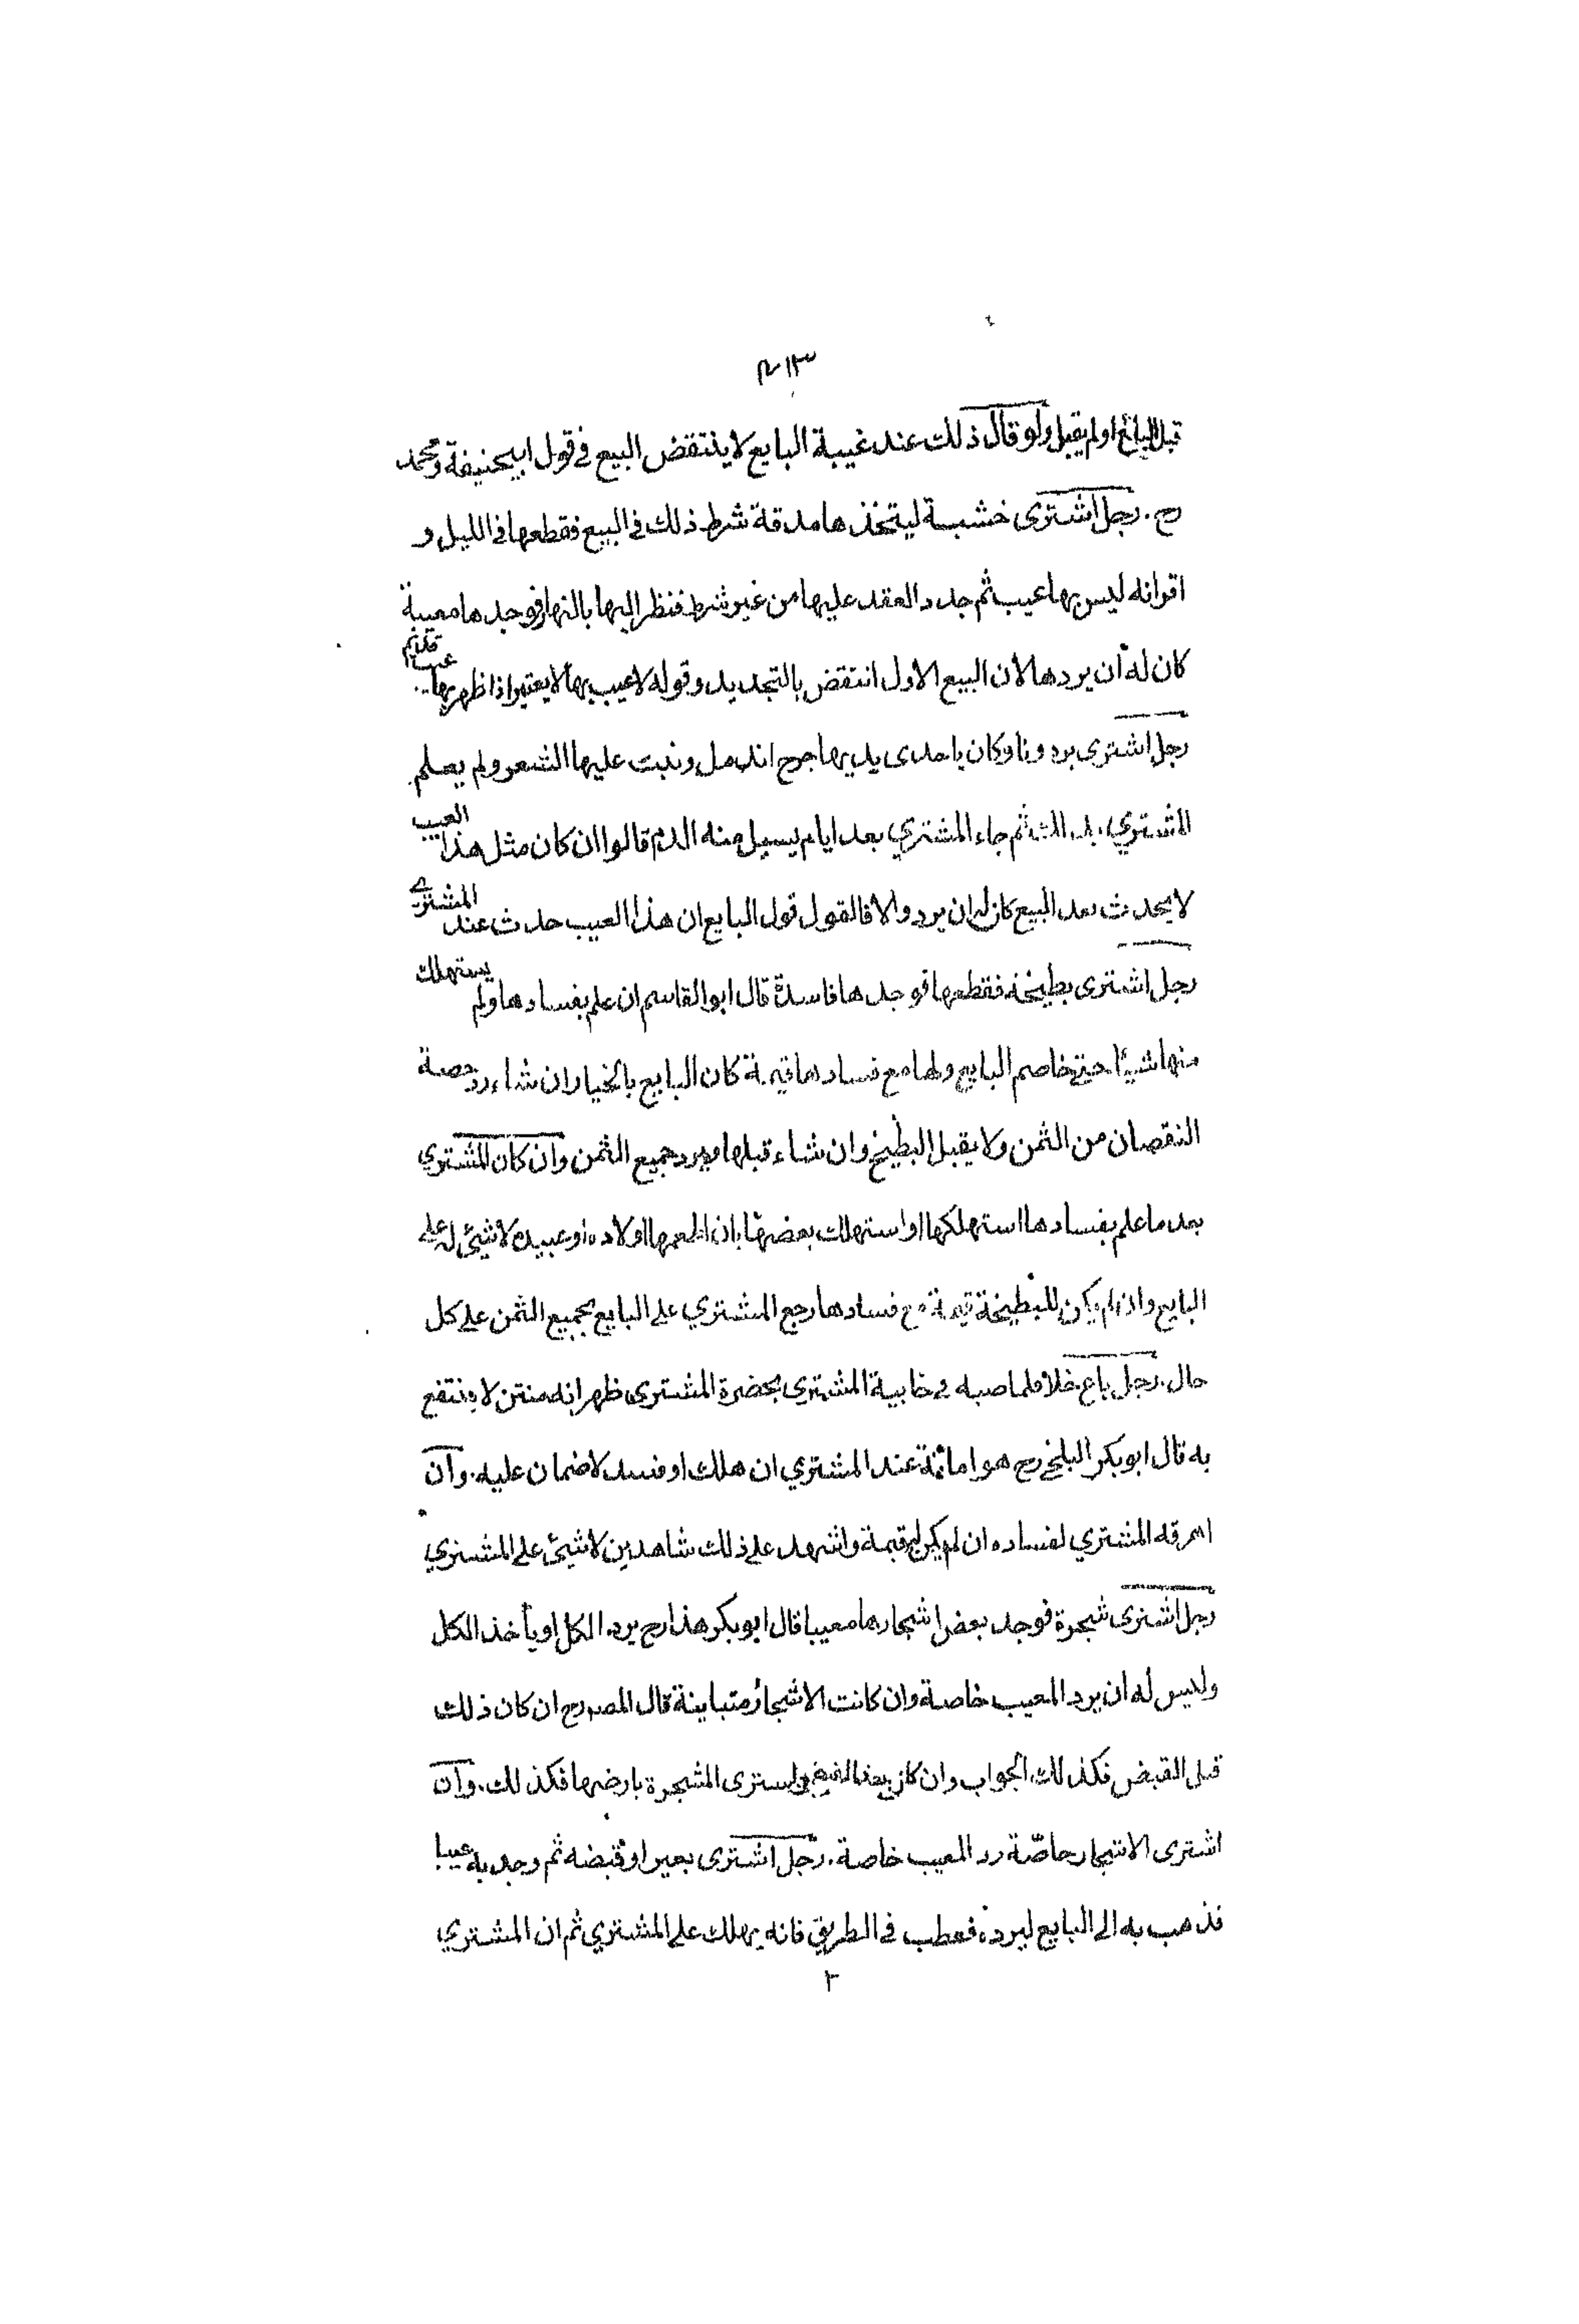 قبل البائع اولم يقبل ولو قال ذلك عند غيبة البايع لا ينتقض البيع في قول ابيحنيفة ومحمد
رح . رجل اشترى خشبة ليتخذها مدقة شرط ذلك في البيع فقطعها في الليل و
اقر انه ليس بها عيب ثم جدد العقد عليها من غير شرط فنظر اليها بالنهار فوجدها معيبة
كان له أن يردها لان البيع الاول انتقض بالتجديد وقوله لا عيب بها لا يعتبر اذا ظهر بها عيب قديم
رجل اشترى برذونا وكان باحدى يديها جرح اندمل ونبت عليها الشعر ولم يعلم
المشتري بذلك ثم جاء المشتري بعد ايام يسيل منه الدم قالوا ان كان مثل هذا العيب
لا يحدث بعد البيع كان له ان يرد والا فالقول قول البايع ان هذا العيب حدث عند المشتري
رجل اشترى بطيخة فقطعها فوجدها فاسدة قال ابو القاسم ان علم بفسادها ولم يستهلك
منها شيئا حتى خاصم البايع ولها مع فسادها قيمة كان البايع بالخيار ان شاء رد حصة
النقصان من الثمن ولا يقبل البطيخ وان شاء قبلها ويرد جميع الثمن وان كان المشتري
بعد ما علم بفسادها استهلكها او استهلك بعضها بان اطعمها اولاده او عبيده لا شيئ له على
البايع واذا لم يكن للبطيخة قيمة مع فسادها رجع المشتري على البايع بجميع الثمن على كل
حال . رجل باع خلا فلما صبه في خابية المشتري بحضرة المشترى ظهر انه منتن لا ينتفع
به قال ابو بكر البلخي رح هو امانة عند المشتري ان هلك او فسد لا ضمان عليه . وان
اهرقه المشتري لفساده ان لم يكن له قيمة واشهد على ذلك شاهدين لا شيئ على المشتري
رجل اشترى شجرة فوجد بعض اشجارها معيبا قال ابو بكر هذا رح يرد الكل او يأخذ الكل
وليس له ان يرد المعيب خاصة وان كانت الاشجار متباينة قال المصر رح ان كان ذلك
قبل القبض فكذلك الجواب وان كان بعد القبض اشترى المشجرة بارضها فكذلك . وان
اشترى الاشجار خاصّة رد المعيب خاصة . رجل اشترى بعيرا وقبضه ثم وجد به عيبا
فذهب به الى البايع ليرده فعطب في الطريق فانه يهلك على المشتري ثم ان المشتري
٢